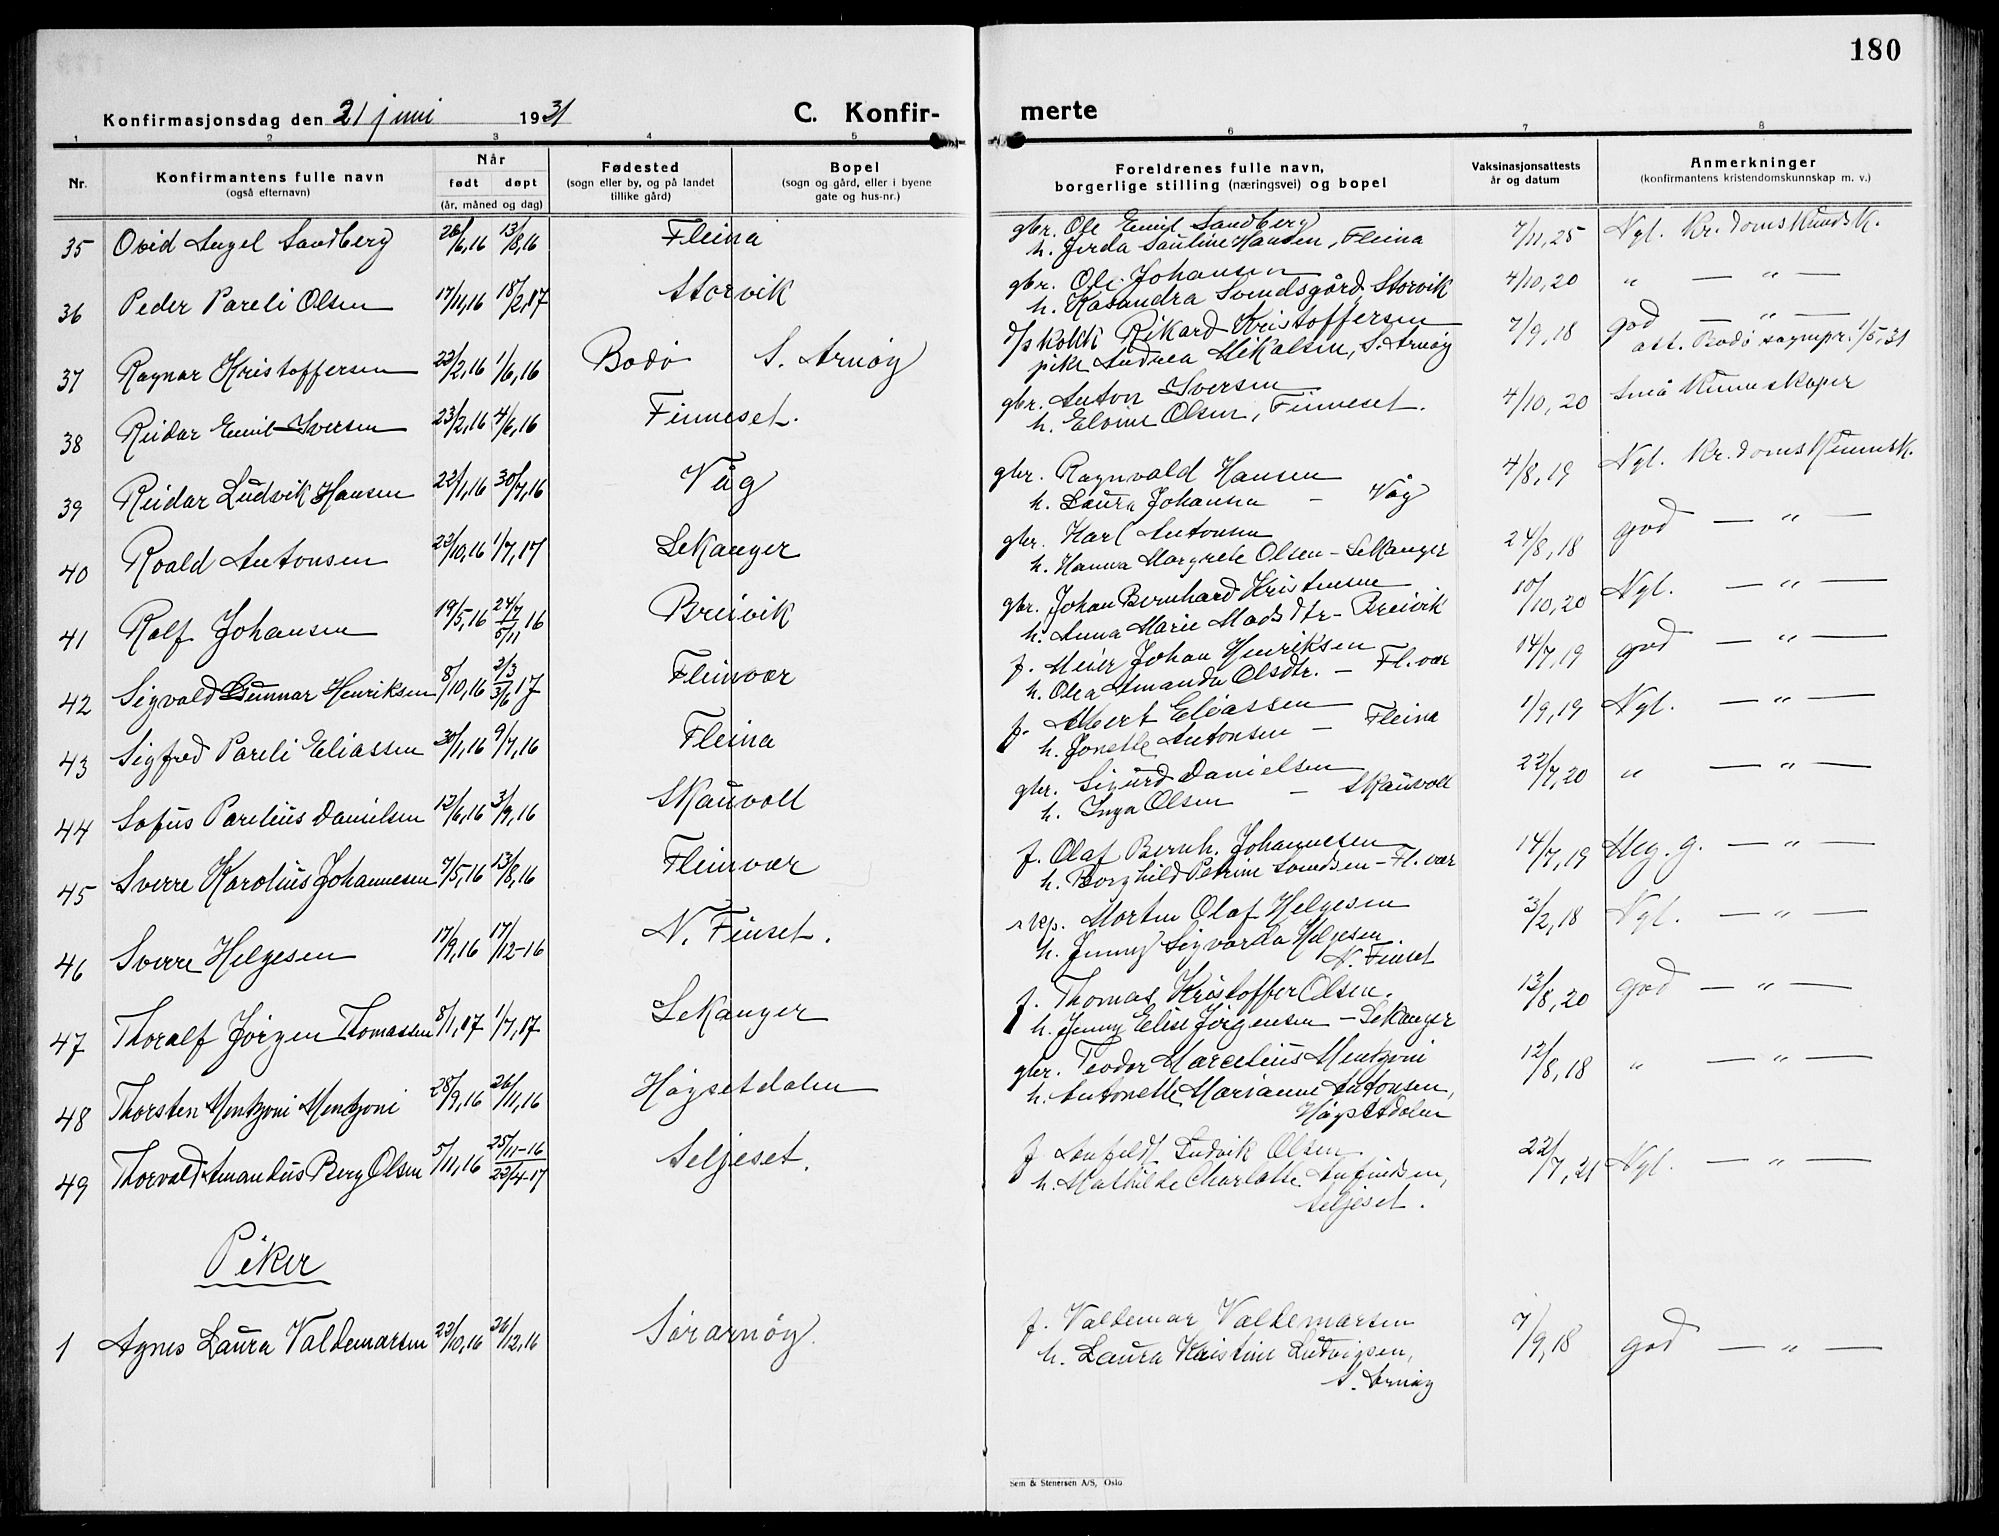 180
Konfirmasjonsdag den 21 juni 1931
C. Konfir-
merte
1 2 3 4 5 6 7 8
Nr.
Konfirmantens fulle navn
(også efternavn)
Når
født døpt
(år, måned og dag)
Fødested
(sogn eller by, og på landet
tillike gård)
Bopel
(sogn og gård, eller i byene
gate og hus-nr.)
Foreldrenes fulle navn,
borgerlige stilling (næringsvei) og bopel
Vaksinasjonsattests
år og datum
Anmerkninger
(konfirmantens kristendomskunnskap m. v.)
35 Ovid Angel Sandberg 26/6,16 13/8,16 Fleina gbr. Ole Emil Sandberg 7/11,25 Ngl. Kr.domskundsk.
h. Jerda Pauline Hansen, Fleina
36 Peder Pareli Olsen 17/11,16 18/2,17 Storvik gbr. Ole Johansen 4/10,20 " — " —
h. Kasandra Svendsgård, Storvik
37 Ragnar Kristoffersen 22/2,16 1/6,16 Bodö S. Arnöy Rikard Kristoffersen 7/9,18 god — " —
pike Andrea Mikalsen, S. Arnöy att. Bodö sognepr. 1/5,31
38 Reidar Emil Iversen 23/2,16 4/6,16 Finneset. gbr. Anton Iversen 4/10,20 Små Kunnskaper
h. Elvine Olsen, Finneset.
39 Reidar Ludvik Hansen 22/1,16 30/7,16 Våg gbr. Ragnvald Hansen 4/8,19 Ngl. Kr.domskunnsk.
h. Laura Johansen — Våg
40 Roald Antonsen 22/10,16 1/7,17 Sekanger gbr. Karl Antonsen 24/8,18 god — " —
h. Hanna Margrete Olsen – Sekanger
41 Rolf Johansen 19/5,16 24/7 5/11 16 Breivik gbr. Johan Bernhard Kristensen 10/10,20 Ngl. — " —
h. Anna Marie Madsdtr – Breivik
42 Sigvald Gunnar Henriksen 8/10,16 2/3 3/6 17 Fleinvær f. Meier Johan Henriksen 14/7,19 god — " —
h. Olea Amanda Olsdtr. – Fl.vær
43 Sigfred Pareli Eliassen 30/1,16 9/7,16 Fleina f. Albert Eliassen 1/9,19 Ngl. — " —
h. Jonette Antonsen — Fleina
44 Sofus Parelius Danielsen 12/6,16 3/9,16 Skauvoll gbr. Sigurd Danielsen 22/7,20 " — " —
h. Inga Olsen — Skauvoll
45 Sverre Karolius Johannesen 7/5,16 13/8,16 Fleinvær f. Olaf Bernh. Johannesen 14/7,19 Meg. g. — " —
h. Borghild Petrine – Fl.vær
46 Sverre Helgesen 17/9,16 17/12-16 N. Finset. Morten Olaf Helgesen 3/2,18 Ngl. — " —
h. Jenny Sigvarda Helgesen.
N. Finset
47 Thoralf Jörgen Thomassen 8/1,17 1/7,17 Sekanger f. Thomas Kristoffer Olsen. 13/8,20 god — " —
h. Jenny Elise Jörgensen – Sekanger
48 Thorsten Mentzoni Mentzoni 28/9,16 26/11,16 Högsetdalen gbr. Teodor Marcelius Mentzoni 12/8,18 " — " —
h. Antonette Marianne Antonsen,
Högsetdalen
49 Thorvald Amandus Berg Olsen 5/11,16 25/11-16 22/4-17 Seljeset. f Ludvik Olsen 22/7,21 Ngl. — " —
h. Mathilde Charlotte Anfindsen,
Seljeset.
Piker
1 Agnes Laura Valdemarsen 22/10,16 26/12,16 Sörarnöy. f. Valdemar Valdemarsen 7/9,18 god — " —
h. Laura Kristine Ludvigsen,
S. Arnöy
Sem & Stenersen A/S, Oslo